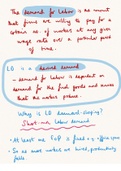 The demand for Labor is the amount
that firms are willing to pay for a
certain no. of workers at any given
wage rate over a particular period
of time.
LD is a derived demand
- demand for labour is dependent on
demand for the final goods and services
that the workers produce.
Why is LD downward-sloping?
Short-run labour demand
- At least one FoP is fixed
- As more workers are hired, productivity
falls.